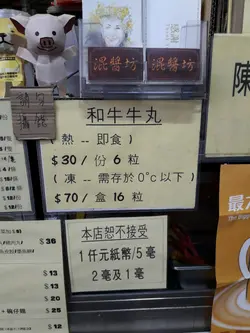 混醬坊 混醬坊
請勿
攝錄
陳
和牛牛丸
( 熱 -- 即食 )
$30/ 份 6 粒
( 凍 -- 需存於 0°c 以下 )
$70/ 盒 16 粒
本店恕不接受
1仟元紙幣/5毫
2毫及1毫
$ 36
$13
$13
$20
+ 碗仔翅 $25
$12
最